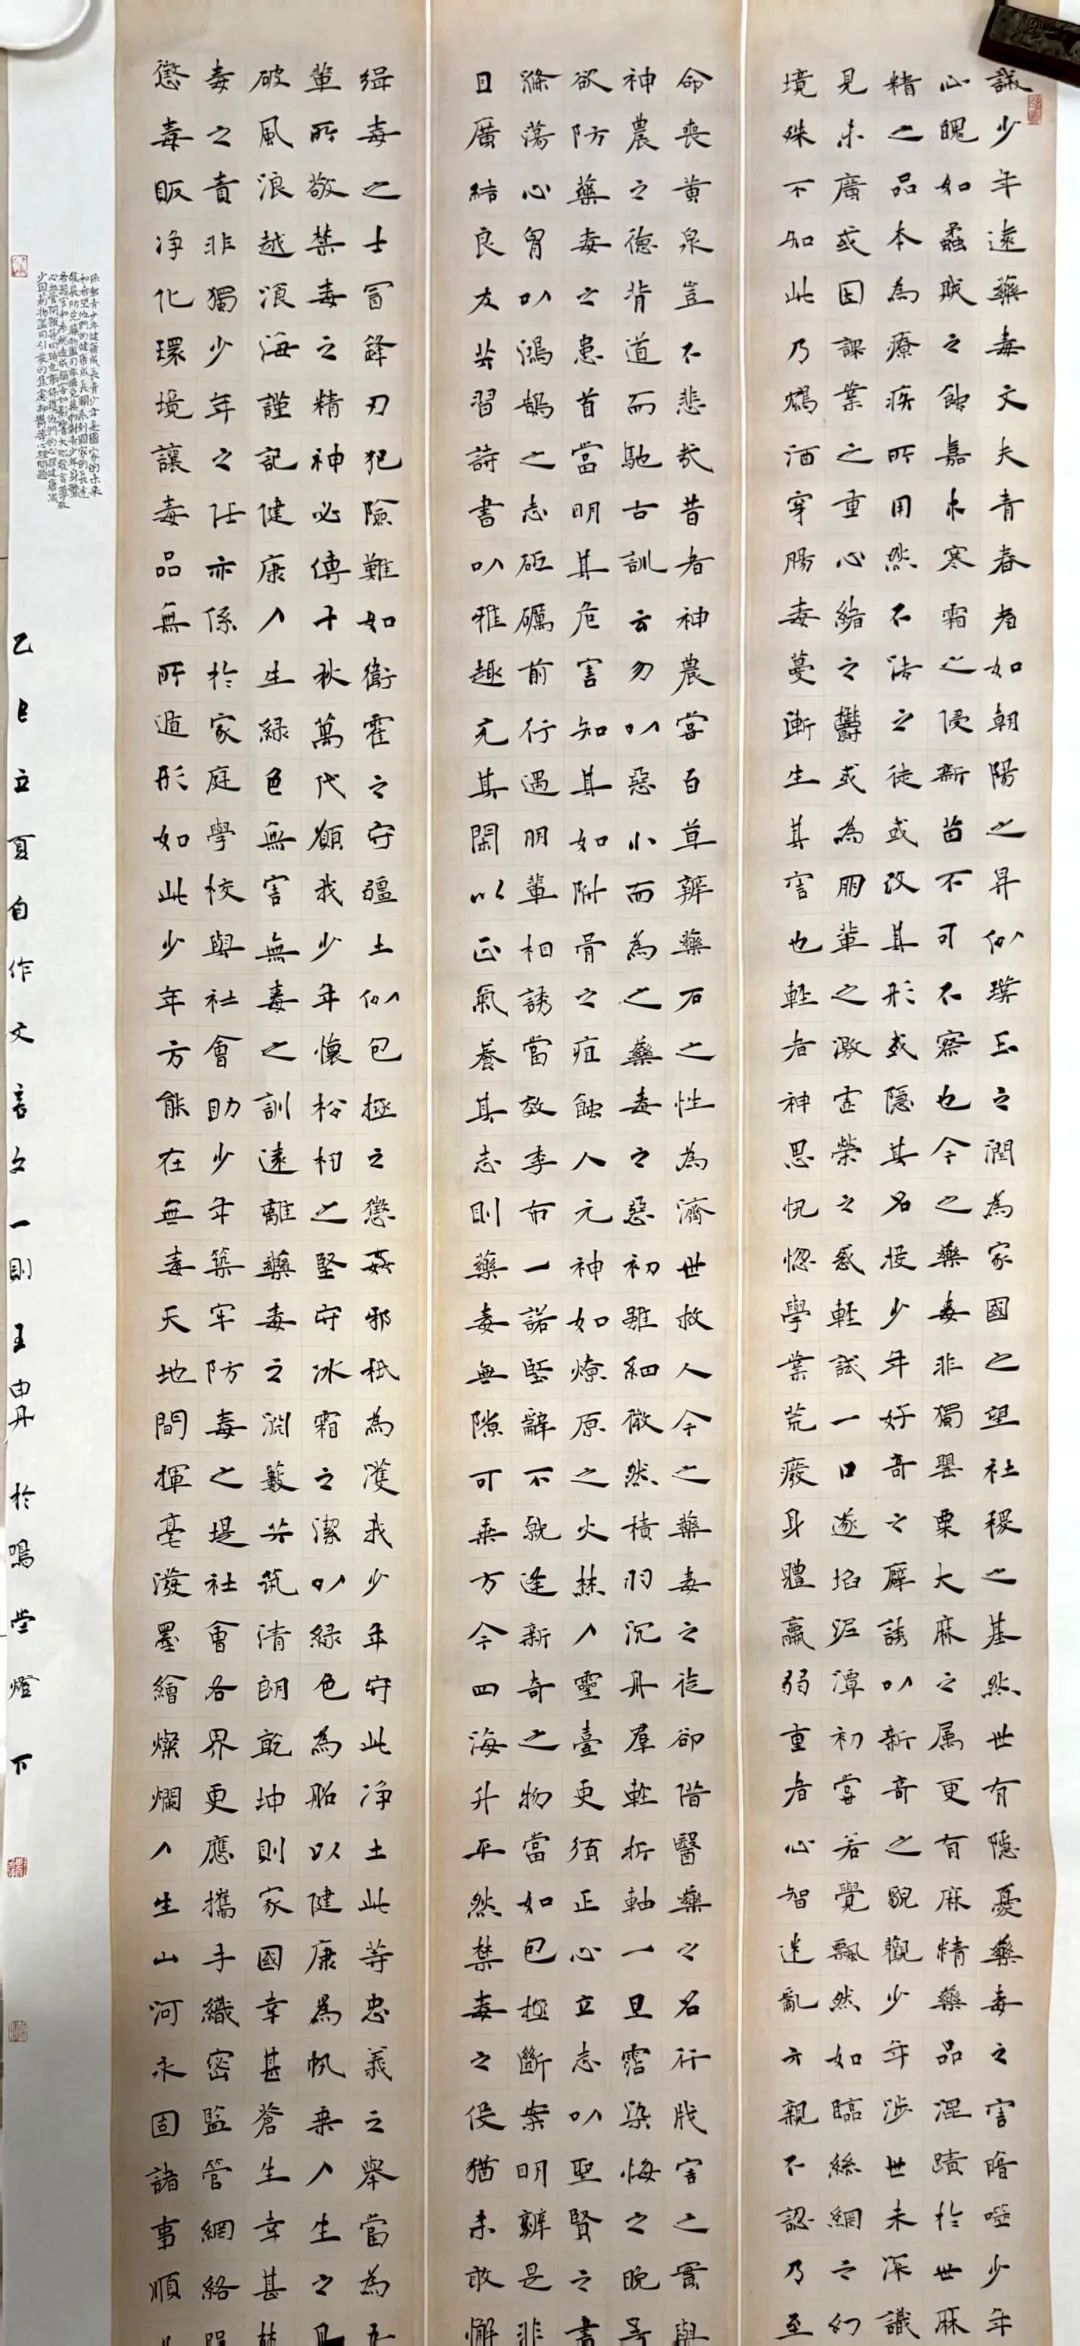 誡少年遠藥毒文夫青春者如朝陽之昇似璞玉之潤為家國之望社稷之基然世有隱憂藥毒之害暗噬少年
心魄如蟊賊之蝕嘉木寒霜之侵新苗不可不察也今之藥毒非獨罌粟大麻之属更有麻精藥品混蹟於世麻
精之品本為療疾所用然不法之徒或改其形或隱其名投少年好奇之癖誘以新奇之貌觀少年涉世未深識
見未廣或因課業之重心緒之鬱或為朋輩之激虛榮之惑輕試一口遂陷泥潭初嘗若覺飄然如臨絲網之幻
境殊不知此乃鴆酒穿腸毒蔓漸生其害也輕者神思恍惚學業荒廢身體羸弱重者心智迷亂六親不認乃至
命喪黄泉豈不悲哉昔者神農嘗百草辨藥石之性為濟世救人今之藥毒之徒卻借醫藥之名行戕害之實與
神農之德背道而馳古訓云勿以惡小而為之藥毒之惡初雖細微然積羽沉舟羣輕折軸一旦霑染悔之晚矣
欲防藥毒之患首當明其危害知其如附骨之疽蝕人元神如燎原之火焚人靈臺更須正心立志以聖賢之書
滌蕩心胃以鴻鵠之志砥礪前行遇朋輩相誘當效季布一諾堅辭不就逢新奇之物當如包拯斷案明辨是非
日廣結良友共習詩書以雅趣充其閑以正氣養其志則藥毒無隙可乘方今四海升平然禁毒之役猶未敢懈
緝毒之士冒鋒刃犯險難如衛霍之守疆土似包拯之懲姦邪秖為護我少年守此净土此等忠義之舉當為吾
輩所敬禁毒之精神必傳千秋萬代願我少年懷松柏之堅守冰霜之潔以綠色為船以健康為帆乘人生之
破風浪越滄海謹記健康人生綠色無害無毒之訓遠離藥毒之淵藪共筑清朗乾坤則家國幸甚蒼生幸甚禁
毒之責非獨少年之任亦係於家庭學校與社會助少年築牢防毒之堤社會各界更應攜手織密監管網絡
懲毒販净化環境讓毒品無所遁形如此少年方能在無毒天地間揮毫潑墨繪燦爛人生山河永固諸事順
乙巳立夏自作文言文一則王由丹於鳴堂燈下